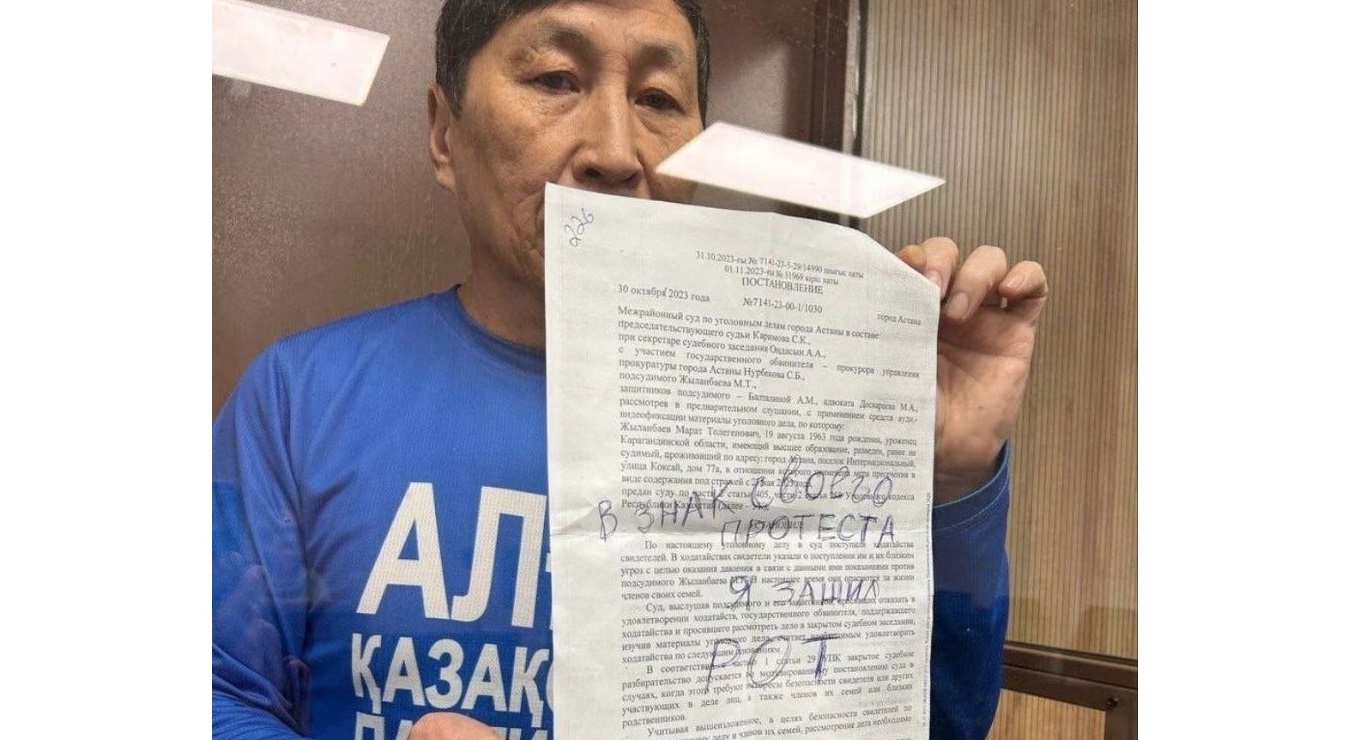 226
31.10.2023-ғы № 7141-23-5-29/14990 шығыс хаты
01.11.2023-ғы № 51969 кіріс хаты
ПОСТАНОВЛЕНИЕ
30 октября 2023 года №7141-23-00-1/1030 город Астана
Межрайонный суд по уголовным делам города Астаны в составе:
председательствующего судьи Каримова С.К.,
при секретаре судебного заседания Оңдасын А.А.,
с участием государственного обвинителя – прокурора управления
прокуратуры города Астаны Нурбекова С.Б.,
подсудимого Жыланбаева М.Т.,
защитников подсудимого – Балталиной А.М., адвоката Доскараева М.А.,
рассмотрев в предварительном слушании, с применением средств аудио-,
видеофиксации материалы уголовного дела, по которому:
Жыланбаев Марат Толегенович, 19 августа 1963 года рождения, уроженец
Карагандинской области, имеющий высшее образование, разведен, ранее не
судимый, проживающий по адресу: город Астана, поселок Интернациональный,
улица Коксай, дом 77а, в отношении которого мера пресечения в
виде содержания под стражей с 2023 года
предан суду по части 2 статьи 405, части 2 Уголовного кодекса
Республики Казахстан (далее -
В ЗНАК СВОЕГО
ПРОТЕСТА
По настоящему уголовному делу в суд поступили ходатайства
свидетелей. В ходатайствах свидетели указали о поступлении им и их близким
угроз с целью оказания давления в связи с данными ими показаниями против
подсудимого Жыланбаева М.Т. В настоящее время они опасаются за жизни
членов своих семей.
Я ЗАШИЛ
Суд, выслушав подсудимого и его отказать в
удовлетворении ходатайств, государственного обвинителя, поддержавшего
ходатайства и просившего рассмотреть дело в закрытом судебном заседании,
изучив материалы уголовного дела, считает необходимым удовлетворить
ходатайства по следующим основаниям.
РОТ
В соответствии с частью 1 статьи 29 УПК закрытое судебное
разбирательство допускается по мотивированному постановлению суда в
случаях, когда этого требуют интересы безопасности свидетеля или других
участвующих в деле лиц, а также членов их семей или близких
родственников.
Учитывая вышеизложенное, в целях безопасности свидетелей по
делу и членов их семей, рассмотрение дела необходимо
АЛ
ҚАЗАҚ